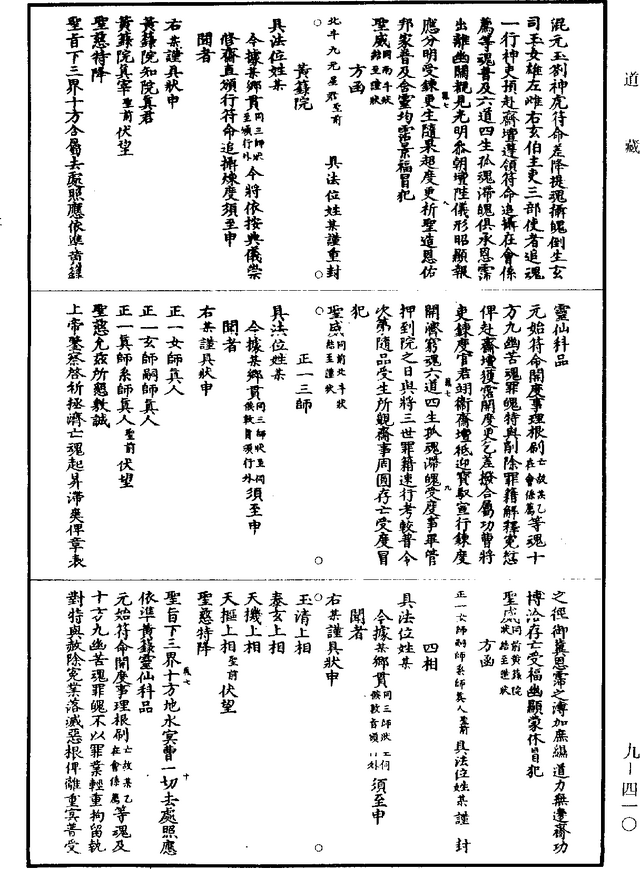 道藏
混元玉劄神虎符命差降提魂攝魄倒生玄
司玉女雄左雌右玄伯主吏三部使者追魂
一行神吏預赴齋壇遵領符命追攝在會係
薦等魂普及六道四生孤魂滯魄俱承恩霈
出離幽關覩見光明參朝壇陛儀形昭顯報
應分明受鍊更生隨果超度更祈聖造恩佑
邦家普及含靈均霑景福冒犯
聖威同南斗狀始至謹狀
方函
北斗九元星君聖前 具法位姓某謹重封
黃籙院
具法位姓某
今據某鄉貫同三師狀至頒行外今將依按典儀崇
修齋直頒行符命追攝煉度須至申
聞者
右某謹具狀申
黃籙院知院真君
黃籙院真宰聖前伏望
聖慈特降
聖旨下三界十方合屬去處照應依準黃籙
靈仙科品
元始符命開度事理根刷亡故某乙在會係薦等魂十
方九幽苦魂罪魄特與削除罪籍解釋冤愆
俾赴齋壇獲霑開度更乞差撥合屬功曹將
吏鍊度官君翊衛齋壇祗迎寶馭宣行鍊度
開濟窮魂六道四生孤魂滯魄受度事畢管
押到院之日與將三世罪籍速行考較普令
次第隨品受生所覬齋事周圓存亡受度冒
犯
聖威同前北斗狀始至謹狀
正一三師
具法位姓某
今據某鄉貫同三師狀至同候敕旨頒行外須至申
聞者
右某謹具狀申
正一女師真人
正一玄師嗣師真人
正一真師系師真人聖前伏望
聖慈允茲所懇敷誠
上帝鑒察啓祈拯濟亡魂起昇滯爽俾章表
之徑御冀恩霈之溥加庶緣道力無邊齋功
博洽存亡受福幽顯蒙休冒犯
聖威同前黃籙院狀始至謹狀
方函
正一女師嗣師系師真人聖前 具法位姓某謹封
四相
具法位姓某
今據某鄉貫同三師狀至同候敕旨頒行外須至申
聞者
右某謹具狀申
玉清上相
泰玄上相
天機上相
天樞上相聖前伏望
聖慈特降
聖旨下三界十方地水冥曹一切去處照應
依準黃籙靈仙科品
元始符命開度事理根刷亡故某乙在會係薦等魂及
十方九幽苦魂罪魄不以罪業輕重拘留執
對特與赦除冤業落滅惡根俾離重冥普受
九—四一〇